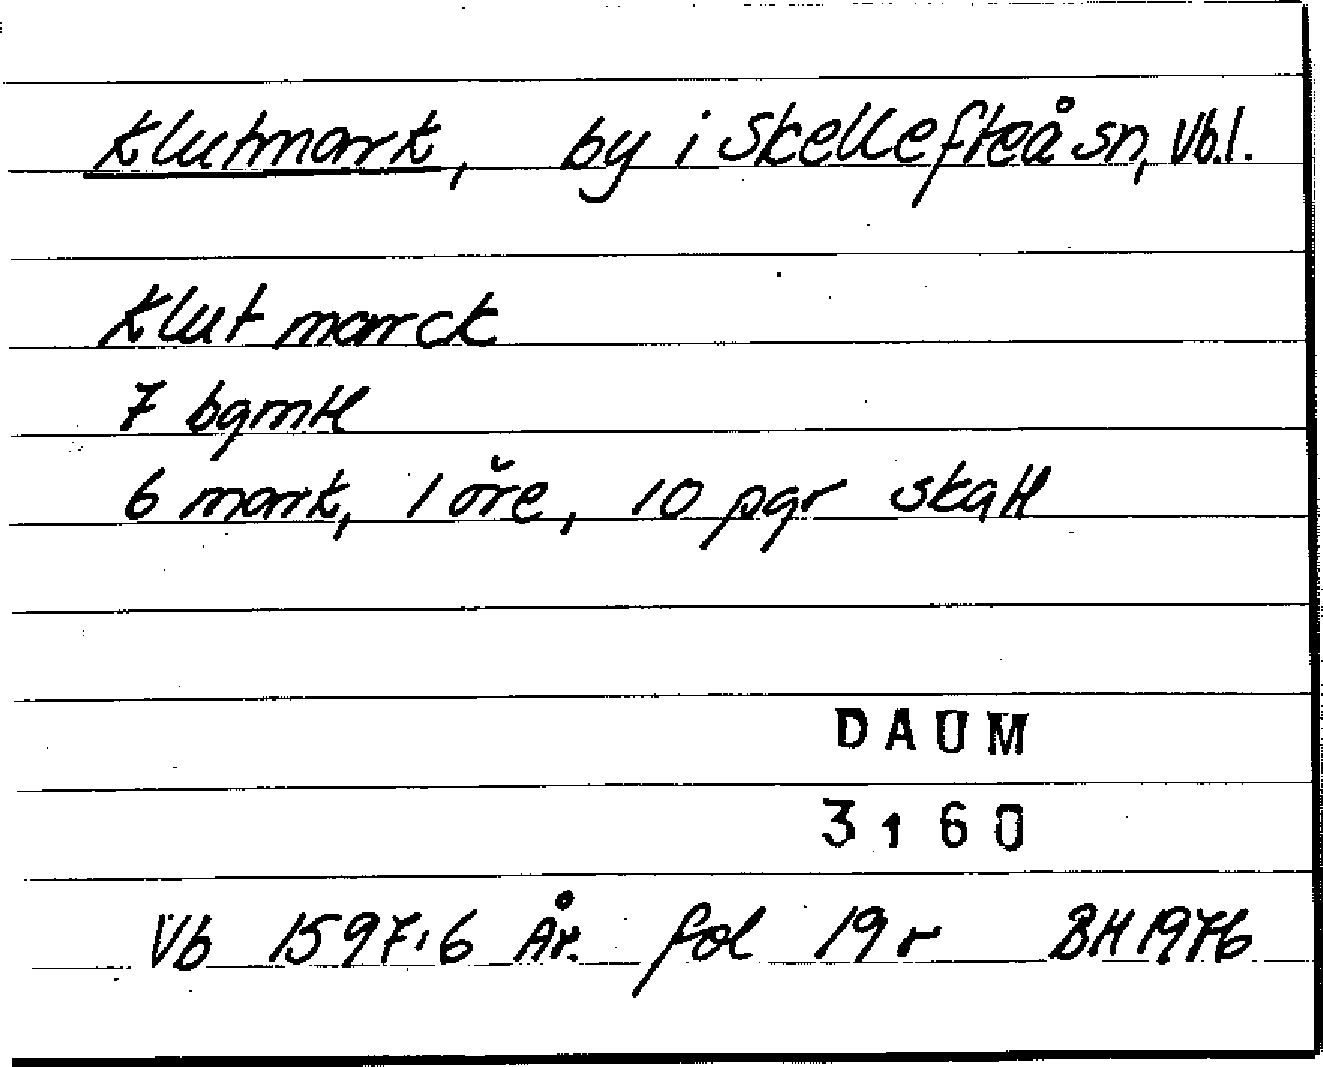 Klutmark, by i Skellefteå sn, Vb.l.
Klut marck
7 bgmtl
6 mark, 1 öre, 10 pgr skatt
DAUM
3160
Vb 1597:6 År. fol 19 r BH 1976